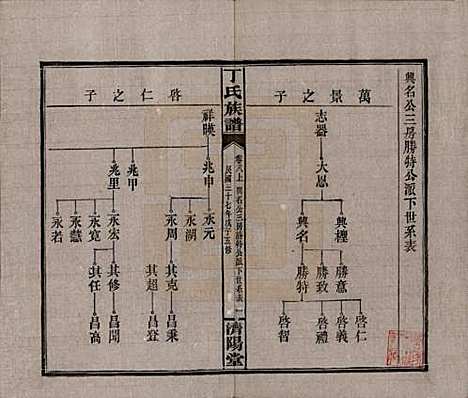 興名公三房勝特公派下世系表
萬景之子
志器
大恩
興樫
興名
勝意
勝致
勝特
啓仁
啓義
啓禮
啓智
丁氏族譜
卷八上
興名公三房勝特公派下世系表
民國三十七年戊子五修
濟陽堂
啓仁之子
祥暎
兆申
兆甲
兆里
永元
永湖
永周
永宏
永寬
永慧
永若
其克
其超
其修
其任
昌秉
昌登
昌聞
昌高